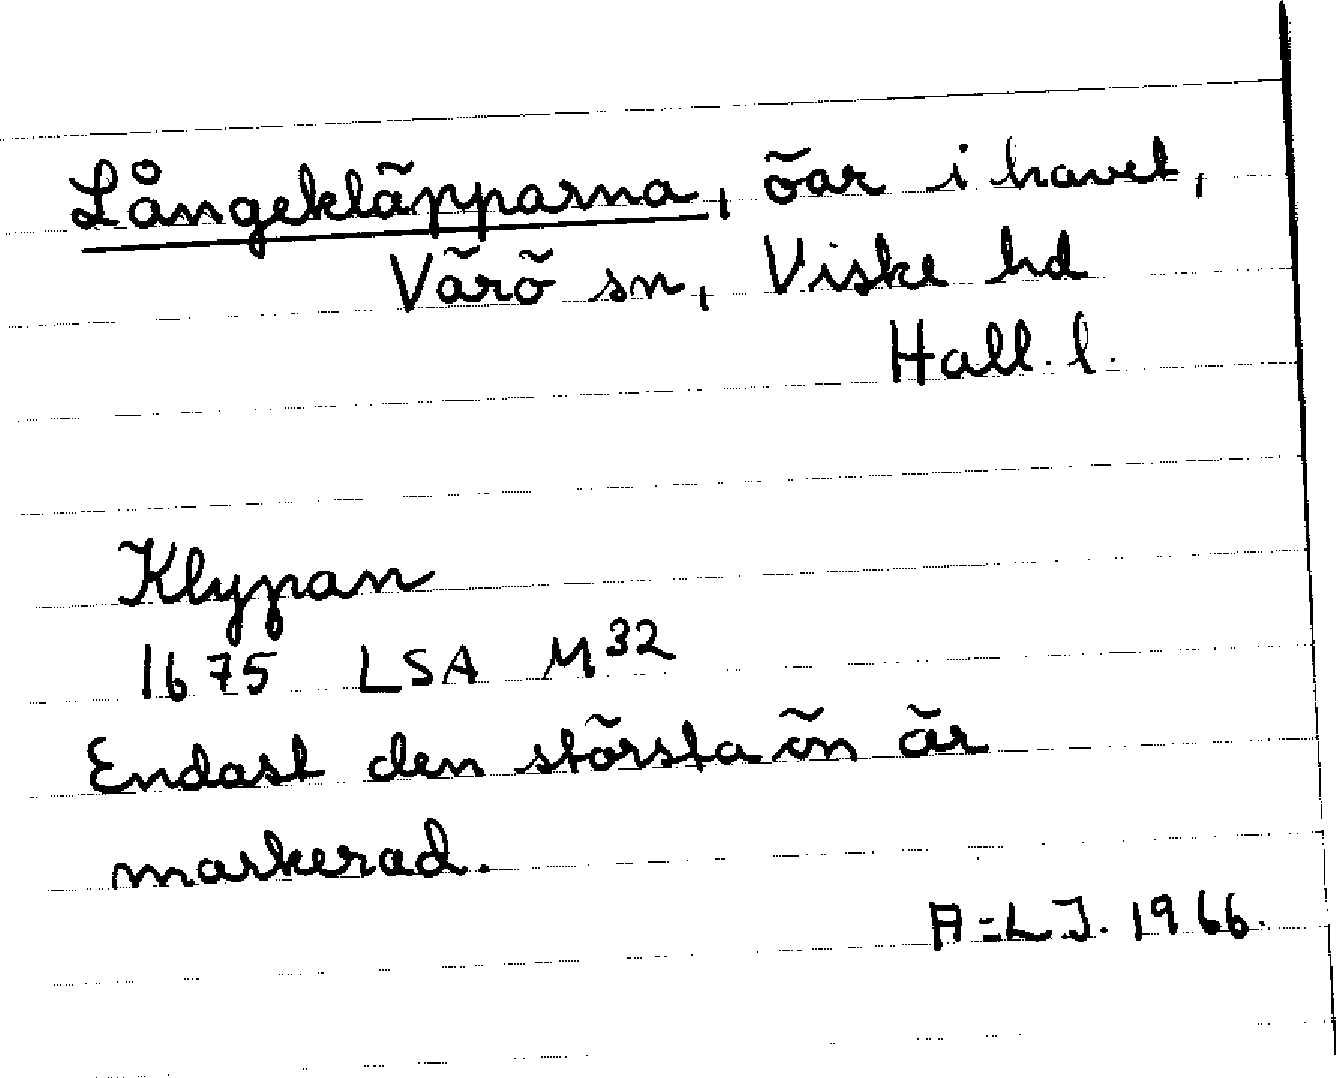 Långekläpparna, öar i havet,
Värö sn, Viske hd
Hall. l.
Klypan
1675 LSA M32
Endast den största ön är
markerad.
A-L J. 1966.